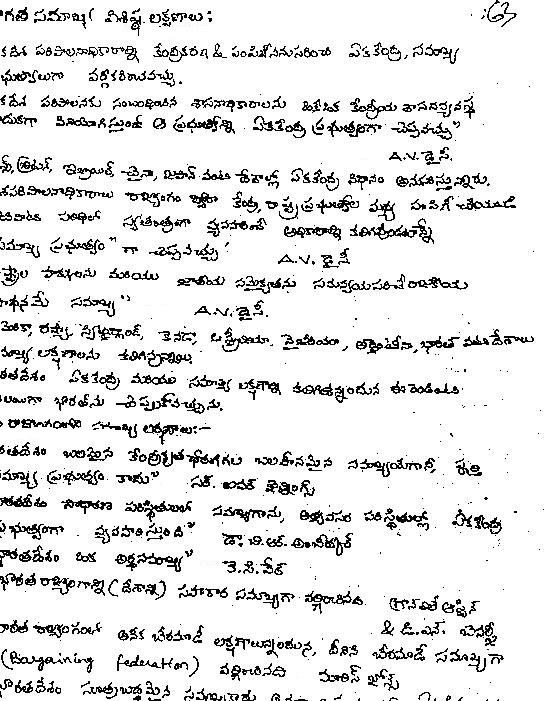 సమాఖ్య విశిష్ట లక్షణాలు : 63
పరిపాలనాధికారాన్ని కేంద్రీకరణ & పంపిణీననుసరించి ఏకకేంద్ర, సమాఖ్య
వర్గీకరించవచ్చు.
పరిపాలనకు సంబంధించిన శాసనాధికారాలను ఒకేఒక కేంద్రీయ శాసనవ్యవస్థ
వినియోగిస్తుంటే ఆ ప్రభుత్వాన్ని ఏకకేంద్ర ప్రభుత్వంగా చెప్పవచ్చు"
A.V. డైసీ.
బ్రిటన్, ఇజ్రాయిల్ చైనా, జపాన్ వంటి దేశాల్లో ఏకకేంద్ర విధానం అనుసరిస్తున్నారు.
రాజ్యాంగం ద్వారా కేంద్ర, రాష్ట్ర ప్రభుత్వాల మధ్య పంపిణీ చేయబడి
పరిధిలో స్వతంత్రంగా వ్యవహరించే అధికారాన్ని కలిగివుండటాన్నే
ప్రభుత్వం" గా చెప్పవచ్చు'
A.V. డైసీ
హక్కులను మరియు జాతీయ సమైక్యతను సమన్వయపరిచే రాజకీయ
సమాఖ్య" A.V. డైసీ.
రష్యా, స్విట్జర్లాండ్, కెనడా, ఆస్ట్రేలియా, నైజీరియా, అర్జెంటీనా, భారత్ వంటి దేశాలు
లక్షణాలను కలిగివున్నాయి.
ఏకకేంద్ర మరియు సమాఖ్య లక్షణాన్ని కలిగివున్నందున ఈ రెండింటి
భారత్‌ను చెప్పుకోవచ్చును.
రాజ్యాంగంలోని సమాఖ్య లక్షణాలు:-
బలమైన కేంద్రీకృత ధోరణిగల బలహీనమైన సమాఖ్యయేగానీ, పూర్తి
ప్రభుత్వం కాదు" సర్. ఐవర్ జెన్నింగ్స్
సాధారణ పరిస్థితులలో సమాఖ్యగాను, అత్యవసర పరిస్థితుల్లో ఏకకేంద్ర
వ్యవహరిస్తుంది" డా. బి.ఆర్. అంబేద్కర్
భారతదేశం ఒక అర్ధసమాఖ్య" కె.సి. వేర్
భారత రాజ్యాంగాన్ని (దేశాన్ని) సహకార సమాఖ్యగా వర్ణించినది గ్రాన్‌విలే ఆస్టిన్
& డి.ఎన్. బెనర్జీ
రాజ్యాంగంలో అనేక బేరమాడే లక్షణాలున్నందున, దీనిని బేరమాడే సమాఖ్యగా
(Bargaining federation) వర్ణించినది మారిస్ జోన్స్
భారతదేశం